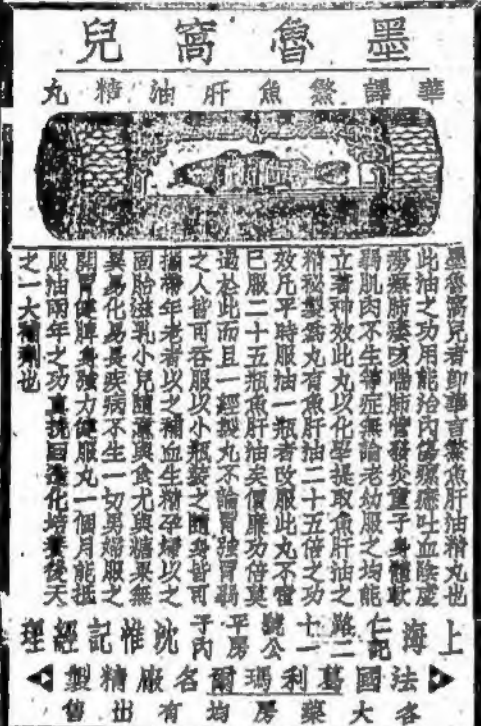 墨魯窩兒
華譯鰵魚肝油精丸
墨魯窩兒者即華言鰵魚肝油精丸也
此油之功用能治內傷瘰癧吐血陰虛
癆瘵肺痿咳喘肺管發炎童子身體軟
弱肌肉不生等症無論老幼服之均能
立著神效此丸以化學提取魚肝油之
精祕製為丸有魚肝油二十五倍之功
效凡平時服油一瓶者改服此丸不啻
已服二十五瓶魚肝油矣價廉功倍莫
過於此而且一經製丸不論胃強胃弱
之人皆可吞服以小瓶裝之隨身皆可
攜帶年老者以之補血生精孕婦以之
固胎滋乳小兒隨意與食尤與糖果無
異易化易長疾病不生一切男婦服之
開胃健脾身強力健服丸一個月能抵
服油兩年之功真挽回造化培養後天
之一大補劑也
上海仁記路二十一號公平房子內沈惟記經理
法國葛利瑪爾各廠精製
各大藥房均有出售